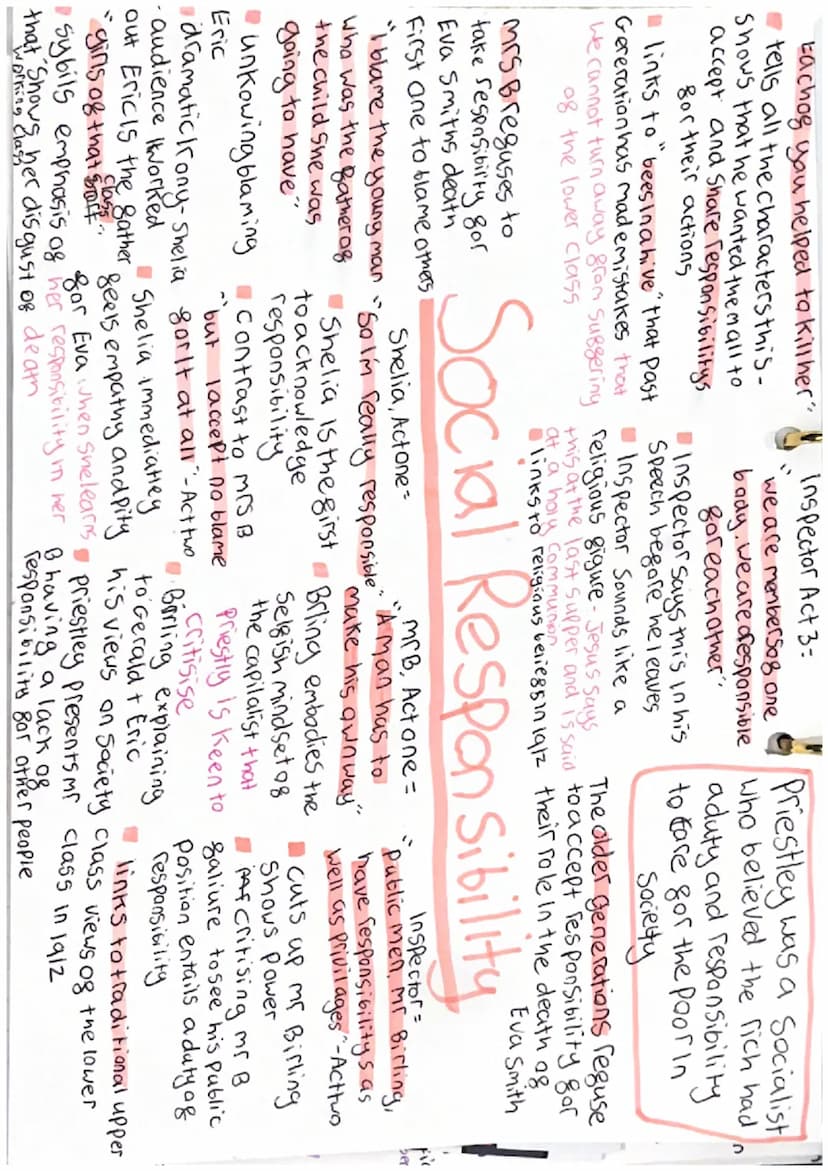 Each of you helped to kill her".
tells all the characters this -
shows that he wanted them all to
accept and share responsibilitys
for their actions
links to "bees in a hive" that past
Generation has made mistakes that
we cannot turn away from suffering
of the lower class
Inspector Act 3 =
"we are members of one
body. we are responsible
for each other"
Inspector says this in his
speech before he leaves
Inspector sounds like a
religious figure - Jesus says
this at the last supper and is said
at a holy communion
links to religious beliefs in 1912
Priestley was a Socialist
who believed the rich had
a duty and responsibility
to care for the poor in
society
The older generations refuse
to accept responsibility for
their role in the death of
Eva Smith
Mrs B refuses to
take responsibility for
Eva Smiths death
First one to blame others
"I blame the young man
who was the father of
the child she was
going to have"
unkowing blaming
Eric
dramatic Irony - Shelia
- audience worked
out Eric is the father
"girls of that class".
Sybils emphasis of
that "shows her disgust of
working class
Social Responsibility
Shelia, Act one =
"So Im really responsible"
Shelia is the first
to acknowledge
responsibility
contrast to Mrs B
- "but I accept no blame
for it at all" - Act two
Shelia immediatley
feels empathy and pity
for Eva when she learns
her responsibility in her
death
Mr B, Act one =
"A man has to
make his own way"
Brling embodies the
selfish mindset of
the capitalist that
Priestly is keen to
critisise
Birling explaining
to Gerald + Eric
his views on society
Priestley presents Mr
B having a lack of
responsibility for other people
Inspector =
"Public men, Mr Birling,
have responsibilitys as
well as privilages" - Act two
cuts up Mr Birling
shows power
critising Mr B
failure to see his public
position entails a duty of
responsibility
links to traditional upper
class views of the lower
class in 1912